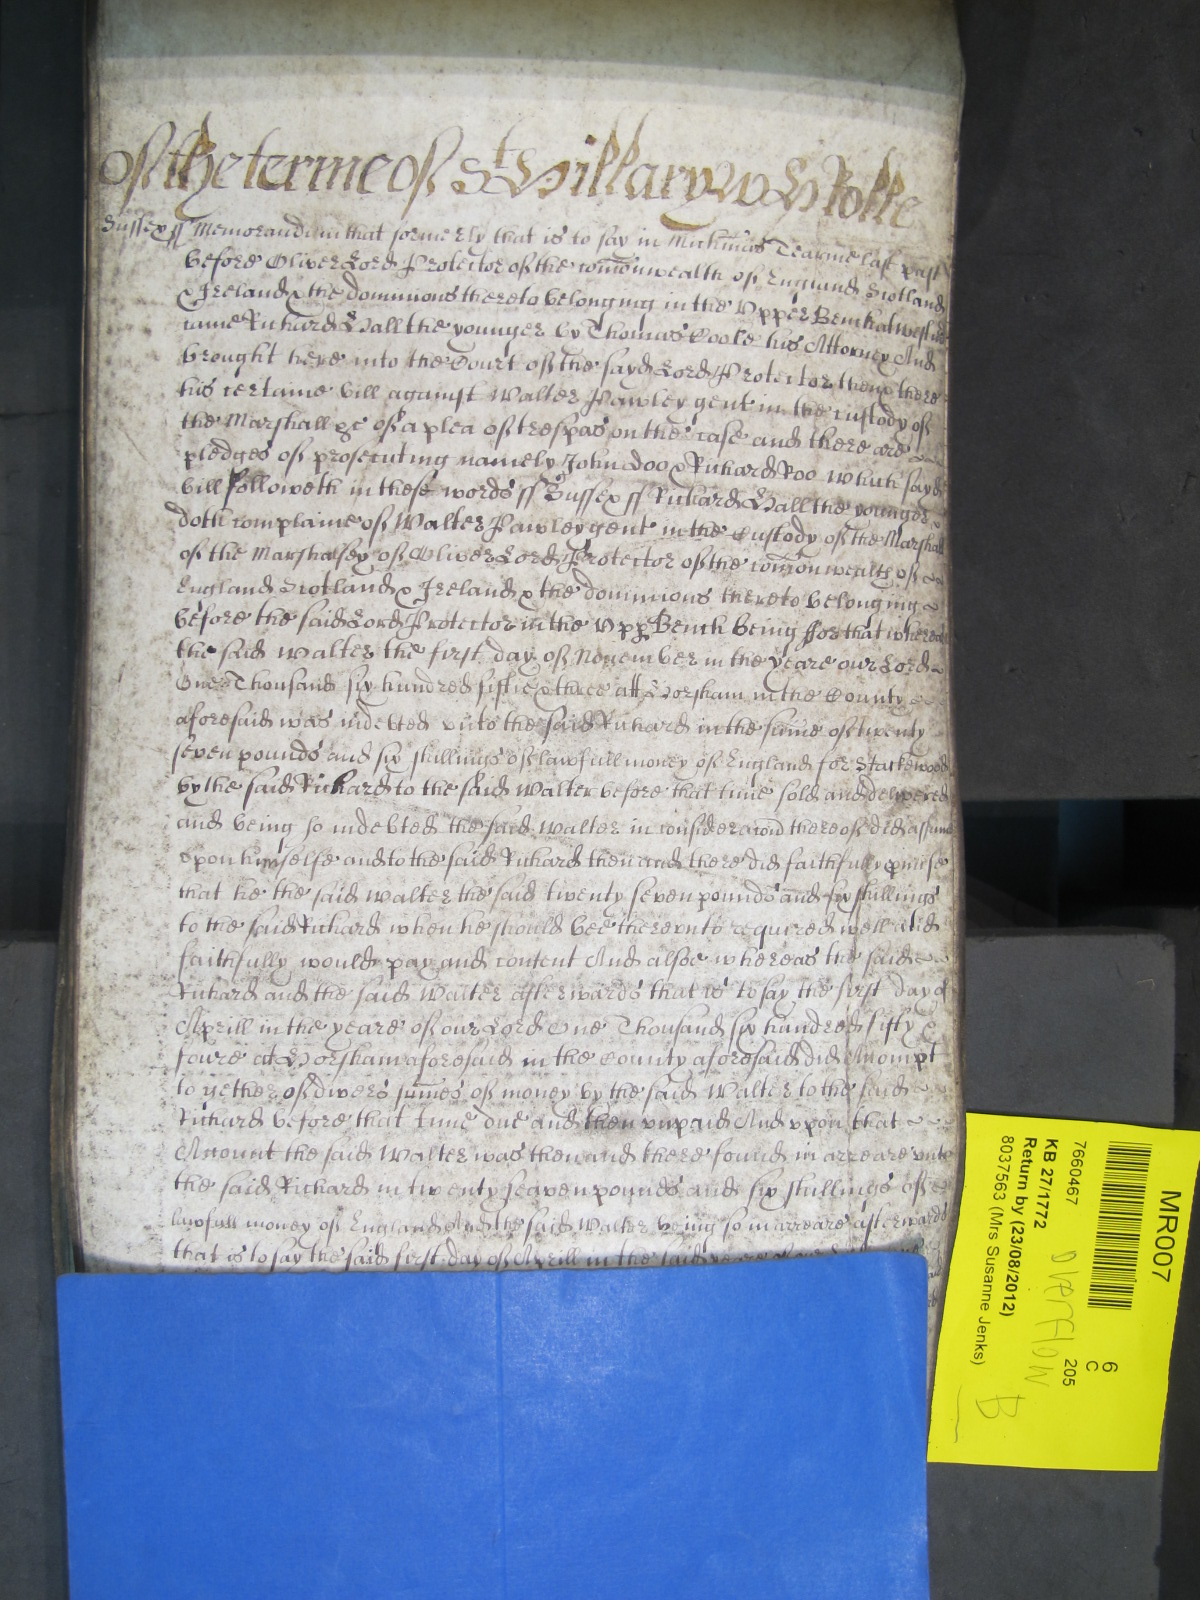 Of the terme of St Hillary w H Rolle
Sussex ss Memorandum that formerly that is to say in Michmas Tearme last past
before Oliver Lord Protector of the comonwealth of England Scotland
& Ireland & the dominions thereto belonging in the Upper Bench at Westmr
came Richard Hall the younger by Thomas Coole his Attorney And
brought here into the Court of the sayd Lord Protector then & there
his certaine bill against Walter Pawley gent in the custody of
the Marshall &c of a plea of trespas on the case and there are
pledges of prosecuting namely John Doo & Richard Roo which sayd
bill followeth in these words ss Sussex ss Richard Hall the younger
doth complaine of Walter Pawley gent in the Custody of the Marshall
of the Marshalsey of Oliver Lord Protector of the comonwealth of
England Scotland & Ireland & the dominions thereto belonging
before the said Lord Protector in the Upp Bench being ffor that whereas
the said Walter the first day of November in the yeare our Lord
One Thousand six hundred fiftie & three att Horsham in the County
aforesaid was indebted unto the said Richard in the sume of twenty
seven pounds and six shillings of lawfull money of England for Stackwood
by the said Richard to the said Walter before that time sold and delivered
and being so indebted the said Walter in consideracion thereof did assume
upon himselfe and to the said Richard then and there did faithfully pmise
that he the said Walter the said twenty seven pounds and six shillings
to the said Richard when he should bee thereunto required well and
faithfully would pay and content And alsoe whereas the said
Richard and the said Walter afterwards that is to say the first day of
Aprill in the yeare of our Lord One Thousand six hundred fifty &
foure at Horsham aforesaid in the County aforesaid did Accompt
together of divers sumes of money by the said Walter to the said
Richard before that time due and then unpaid And upon that
Account the said Walter was then and there found in arreare unto
the said Richard in twenty seaven pounds and six shillings of
lawfull money of England And the said Walter being so in arreare afterwards
that is to say the said first day of Aprill in the said yeare
MR007
6
C
205
7660467
KB 27/1772
Overflow
Return by (23/08/2012)
8037563 (Mrs Susanne Jenks)
B